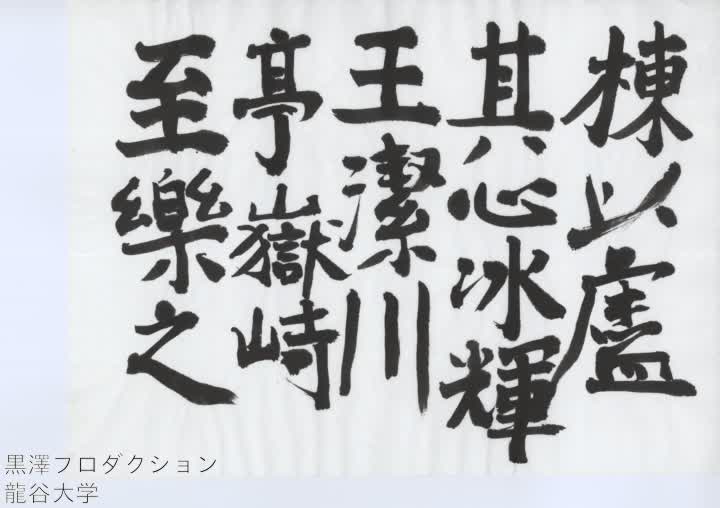 棟以廬
其心冰輝
王潔川
亭嶽崎
至樂之
黒澤プロダクション
龍谷大学